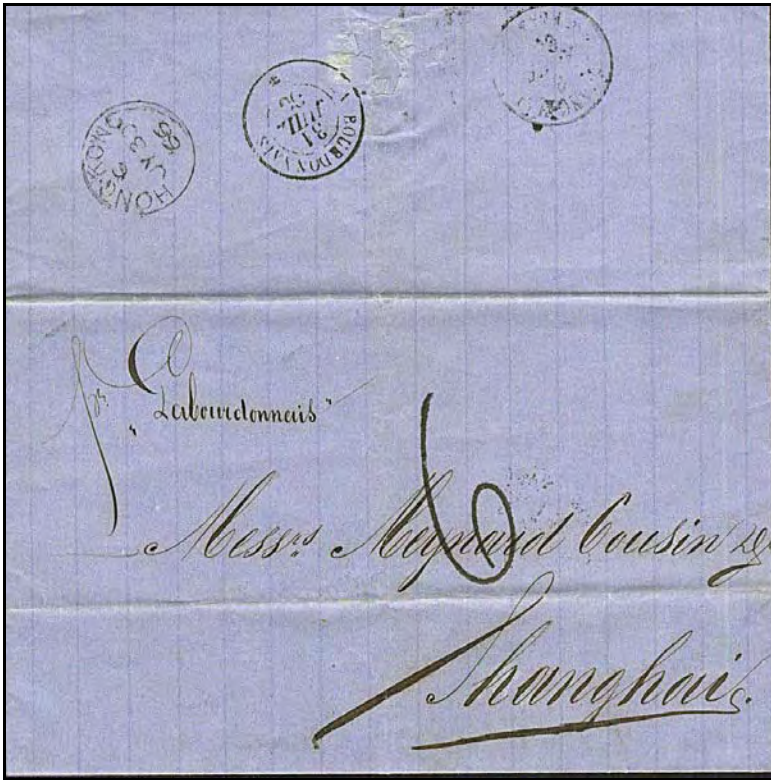 HONG KONG
JY 30
66
BOURDONNAIS
31
JUIL
pr.
"Labourdonnais"
6
Messrs Meynard Cousin
Shanghai.